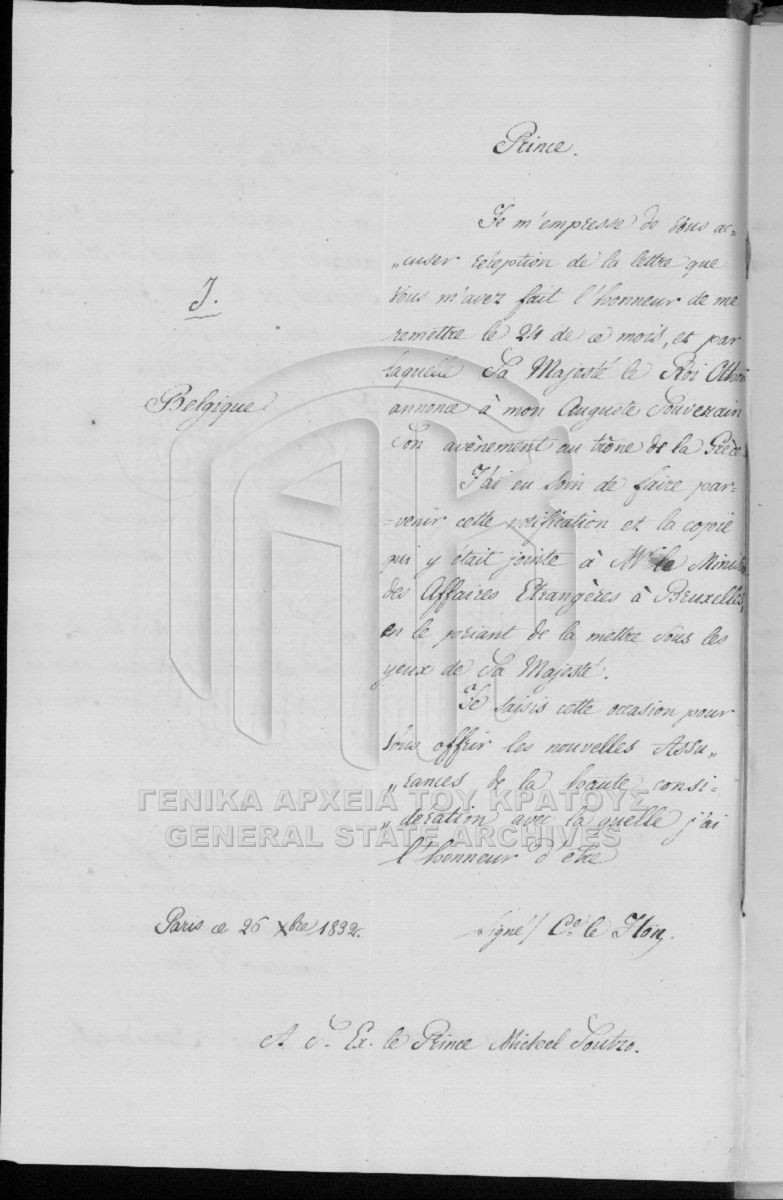 Prince.
Je m'empresse de vous ac„
„cuser réception de la lettre que
vous m'avez fait l'honneur de me
J.
remettre le 24 de ce mois, et par
laquelle Sa Majesté le Roi Othon
Belgique
annonce à mon Auguste Souverain
Son avènement au trône de la Grèce.
J'ai eu soin de faire par=
=venir cette notification et la copie
qui y était jointe à Mr le Ministre
des Affaires Etrangères à Bruxelles,
en le priant de la mettre sous les
yeux de Sa Majesté.
Je saisis cette occasion pour
vous offrir les nouvelles Assu„
„rances de la haute consi-
„deration avec la quelle j'ai
l'honneur d'être
Paris ce 26 Xbre 1832.
signé/ Cte le Hon.
A S. Ex. le Prince Michel Soutzo.
ΓΕΝΙΚΑ ΑΡΧΕΙΑ ΤΟΥ ΚΡΑΤΟΥΣ
GENERAL STATE ARCHIVES